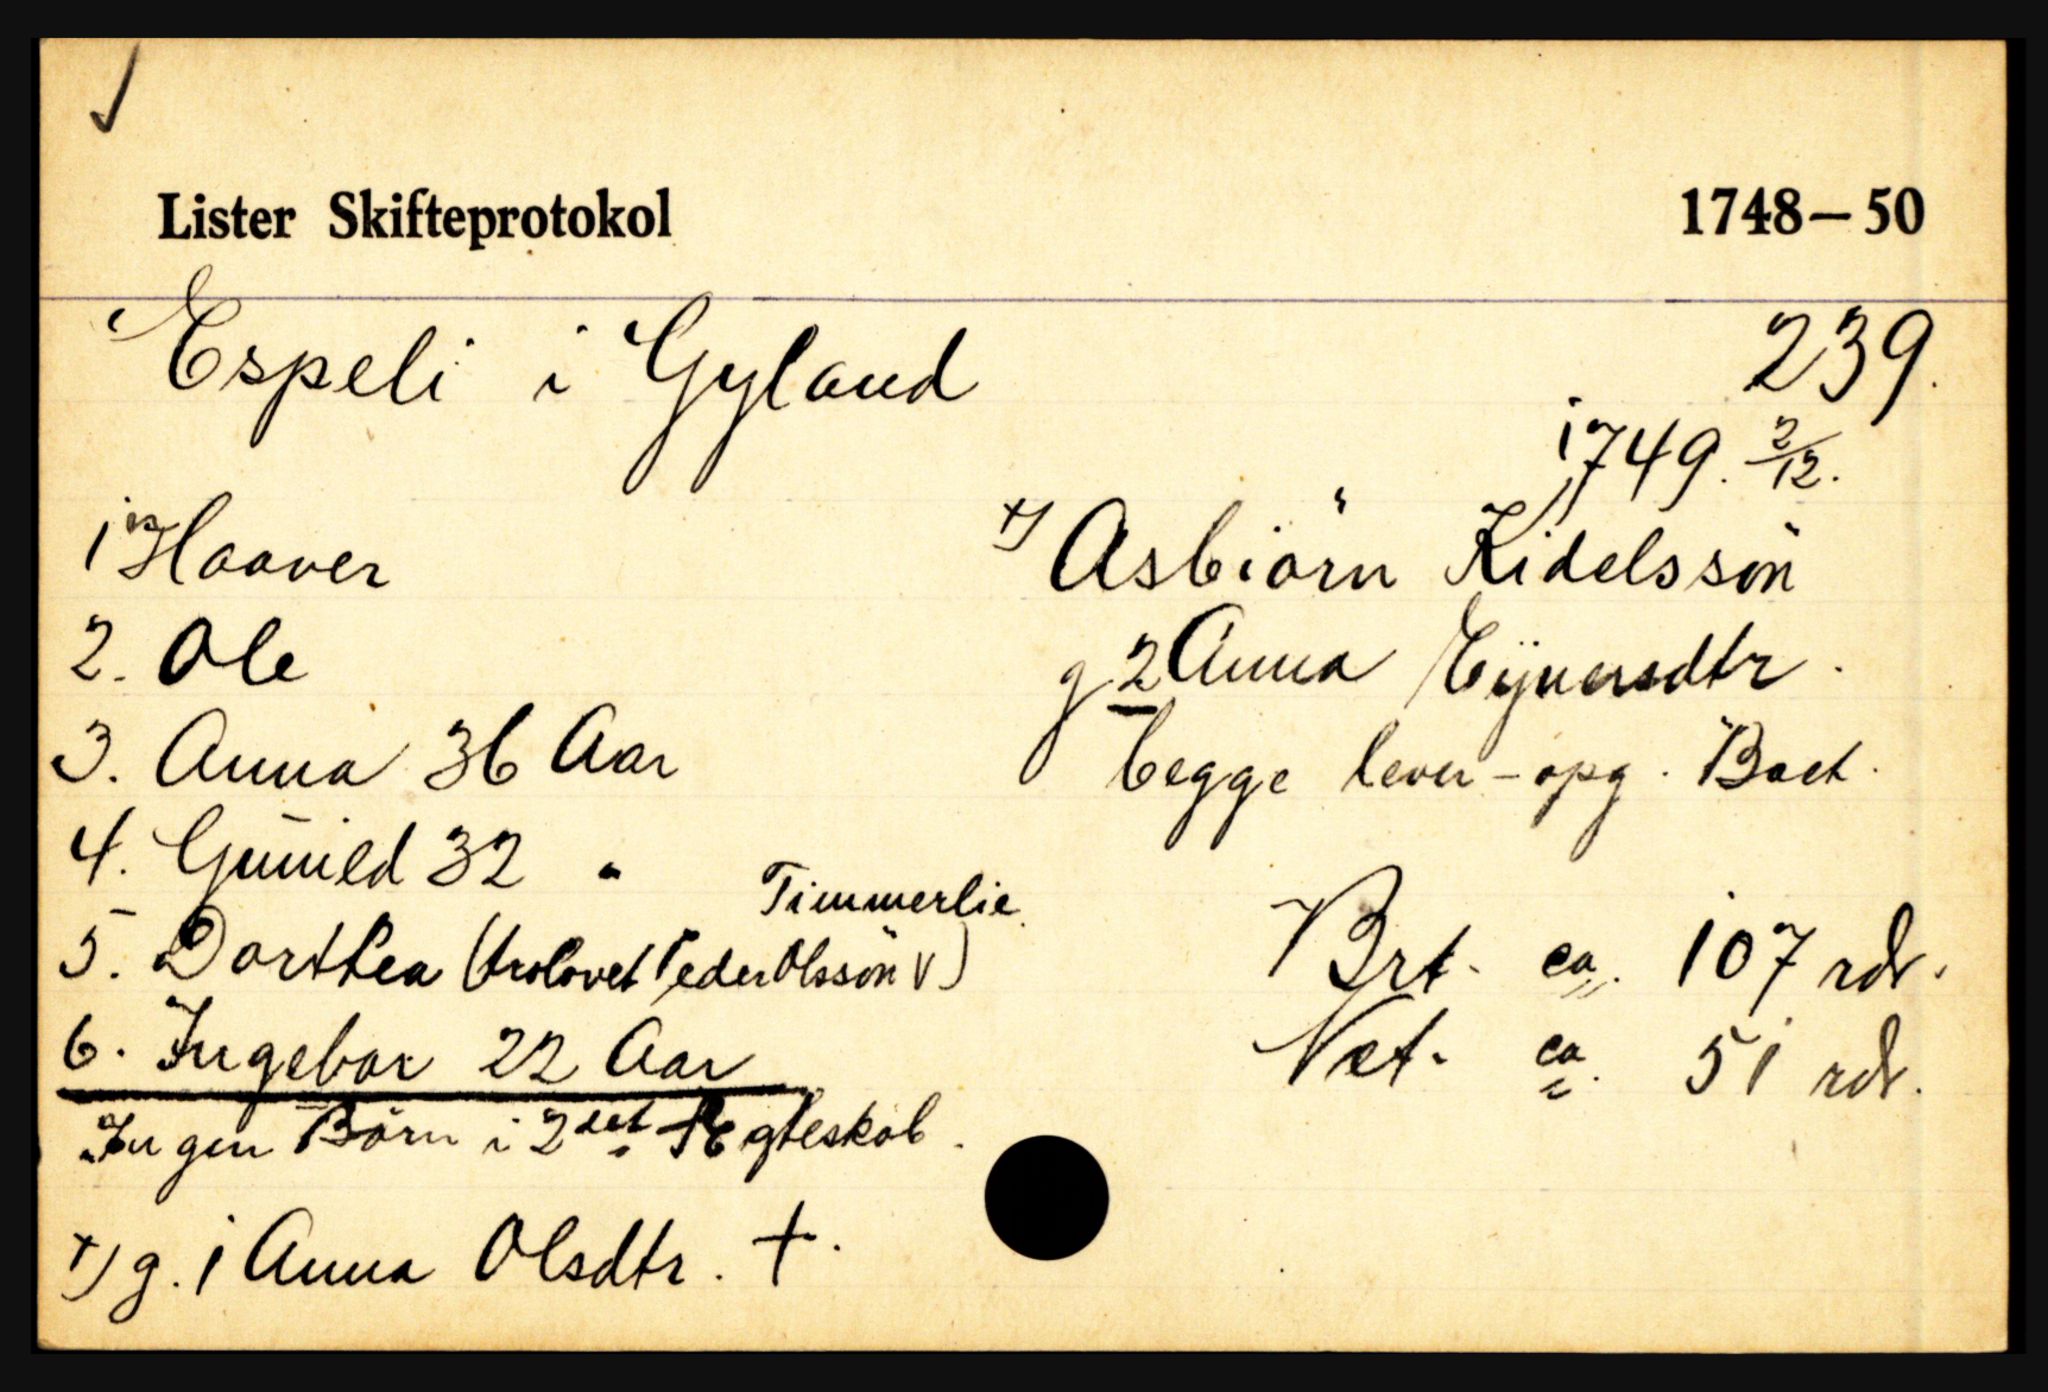 Lister Skifteprotokol 1748–50
Espeli i Gyland 239.
1749. 2/12.
+) Asbiörn Kidelssön
g 2 Anna Eÿnersdtr.
begge lever - opg. Boet.
Brt. ca. 107 rdr.
Net. ca. 51 rdr.
1 Haaver
2. Ole
3. Anna 36 Aar
4. Gunild 32 "
5. Dorthea (trolovet Peder Olssön Timmerlie)
6. Ingebor 22 Aar
Ingen Börn i 2det Ægteskab.
+) g. 1 Anna Olsdtr. +.